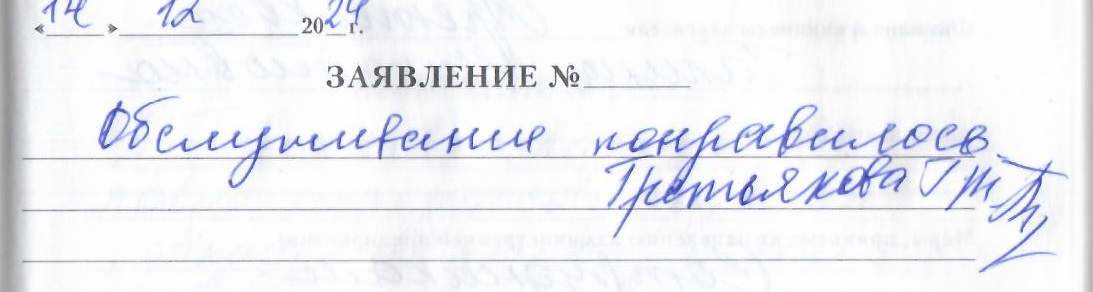 «14» 12 2024 г.
ЗАЯВЛЕНИЕ №
Обслуживание понравилось
Третьякова